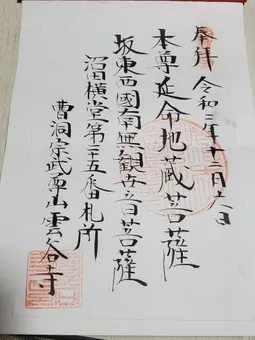 奉拝 令和二年十二月六日
本尊延命地蔵菩薩
坂東西國南無観世音菩薩
沼田横堂第二十五番札所
曹洞宗武尊山雲谷寺